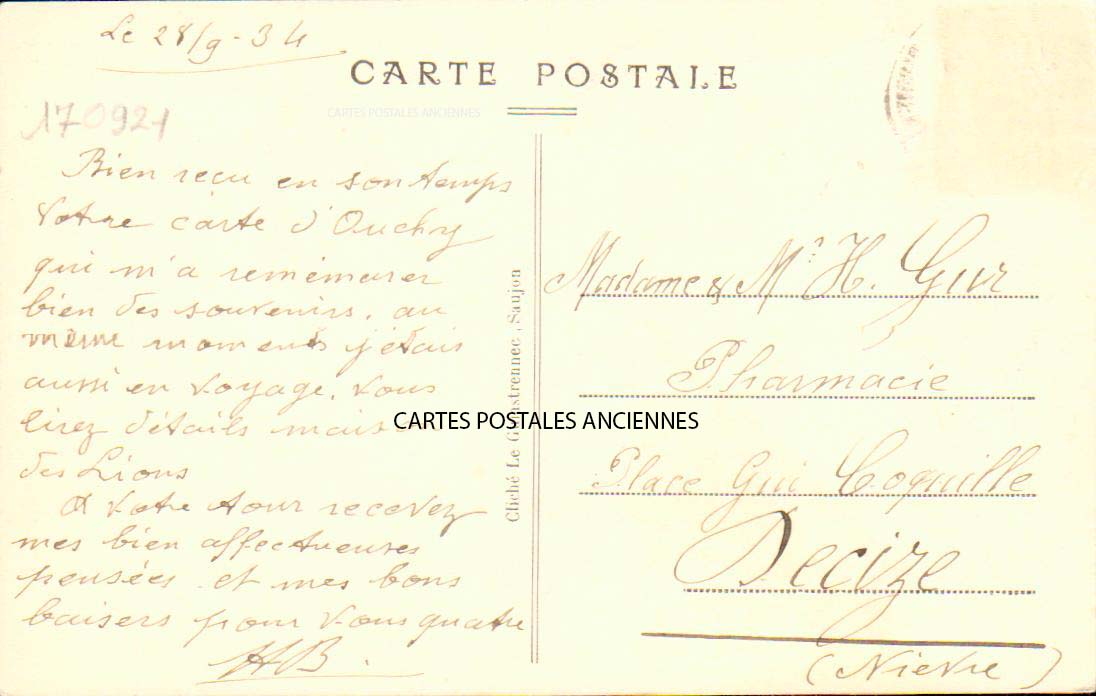 Le 28/9-34
CARTE POSTALE
CARTES POSTALES ANCIENNES
170921
Bien reçu en son temps
Votre carte d'Ouchy
qui m'a remémorer
bien des souvenirs. au
même moments j'étais
aussi en voyage. Vous
lirez détails mais
des Lions
A votre tour recevez
mes bien affectueuses
pensées et mes bons
baisers pour vous quatre
HB.
Cliché Le G strennec, Saujon
CARTES POSTALES ANCIENNES
Madame & Mr H. Gur
Pharmacie
Place Gui Coquille
Decize
(Nièvre)